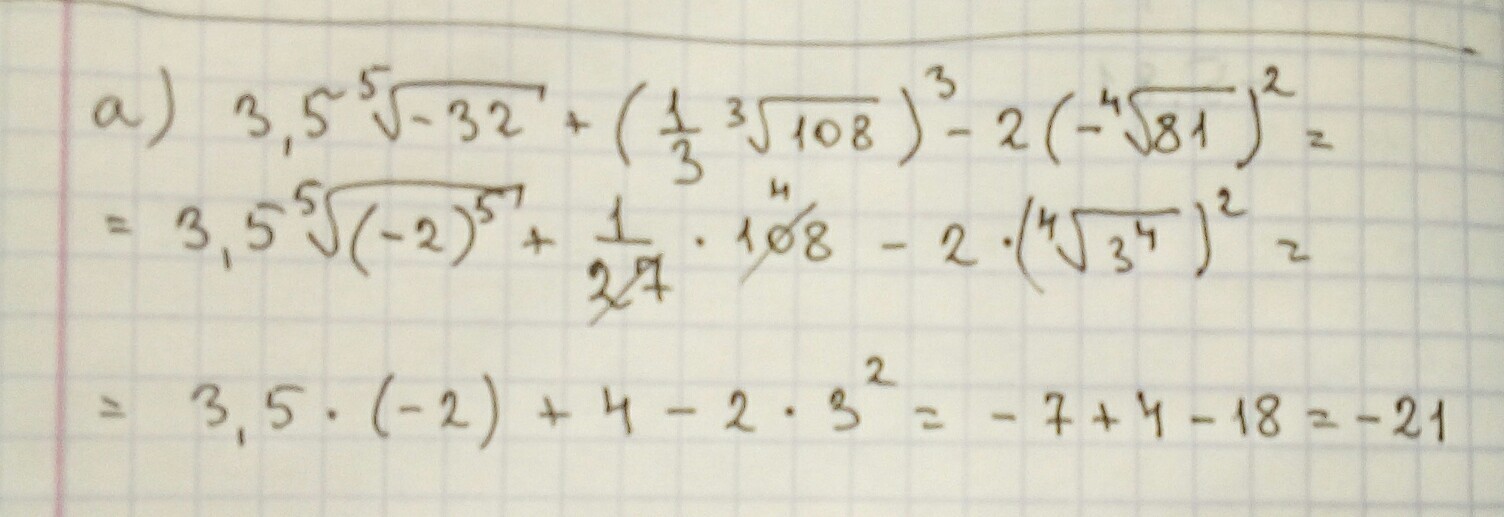 а) 3,5 ⁵√(-32) + (1/3 ³√108)³ - 2(-⁴√81)² =
= 3,5 ⁵√((-2)⁵) + 1/27 · 108 4 - 2 · (⁴√(3⁴))² =
= 3,5 · (-2) + 4 - 2 · 3² = -7 + 4 - 18 = -21